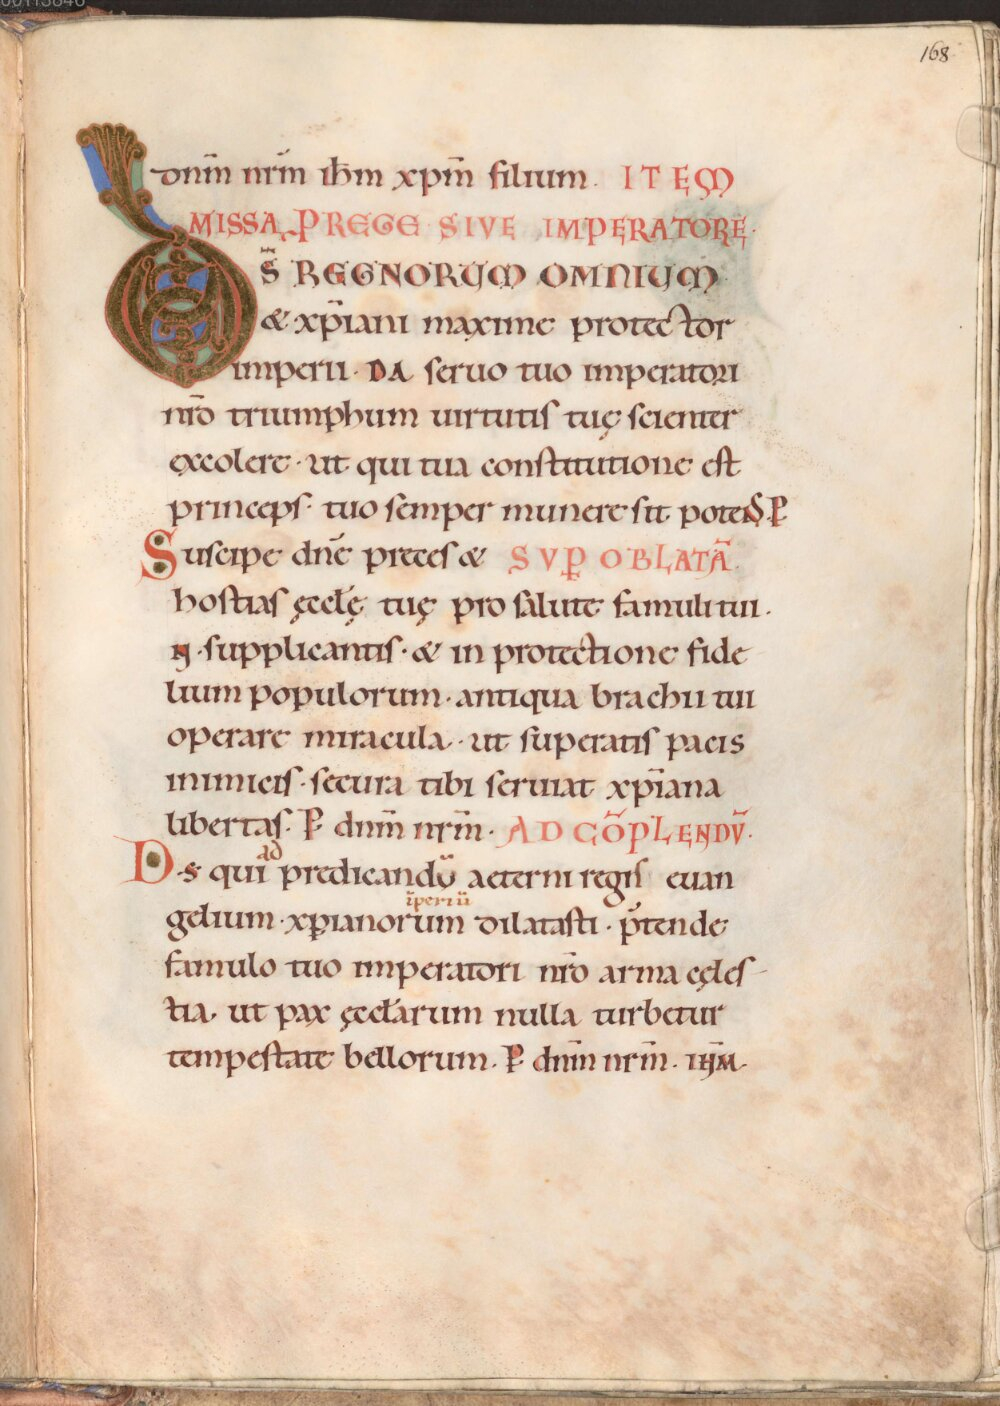 168
dnm̄ nr̄m ih̄m xpm̄ filium. ITEM
MISSA PREGE SIVE IMPERATORE.
DS̄ REGNORUM OMNIUM
& xp̄iani maxime protector
imperii. DA seruo tuo imperatori
nr̄o triumphum uirtutis tuę scienter
excolere. ut qui tua constitutione est
princeps. tuo semper munere sit potens. P
Suscipe dn̄e preces & SUP OBLATĀ.
hostias ęccłę tuę pro salute famuli tui.
N. supplicantis. & in protectione fide
lium populorum. antiqua brachii tui
operare miracula. ut superatis pacis
inimicis. secura tibi seruiat xp̄iana
libertas. P dnm̄ nr̄m. AD CŌPLENDŪ.
DS qui ad predicandū aeterni regis euan
gelium. xp̄ianorum īperiū dilatasti. p̄tende
famulo tuo imperatori nr̄o arma cęles
tia. ut pax ęccłarum nulla turbetur
tempestate bellorum. P dnm̄ nr̄m. IHM̄.